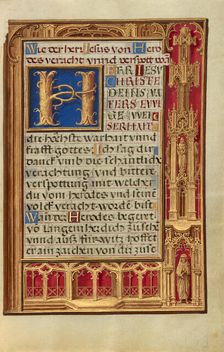 Wie der her Jesus von Hero
des veracht vnnd verspott wa
HERR JESV
CHRISTE
DEINS VA
TERS EWI
GE WEI
SERHAIT
die höchst warhait vnnd
krafft gottes: Ich sag dir
danck vmb die schantlich
verachtung vnd bittere
verspottung mit welchet
du vom herodes vnd seine
volck verachtet worden bist
Wann: Herodes begert
vo langem her dich zusech
vnnd aus fürwitz hoffet
er ain zaichen von dir zuse